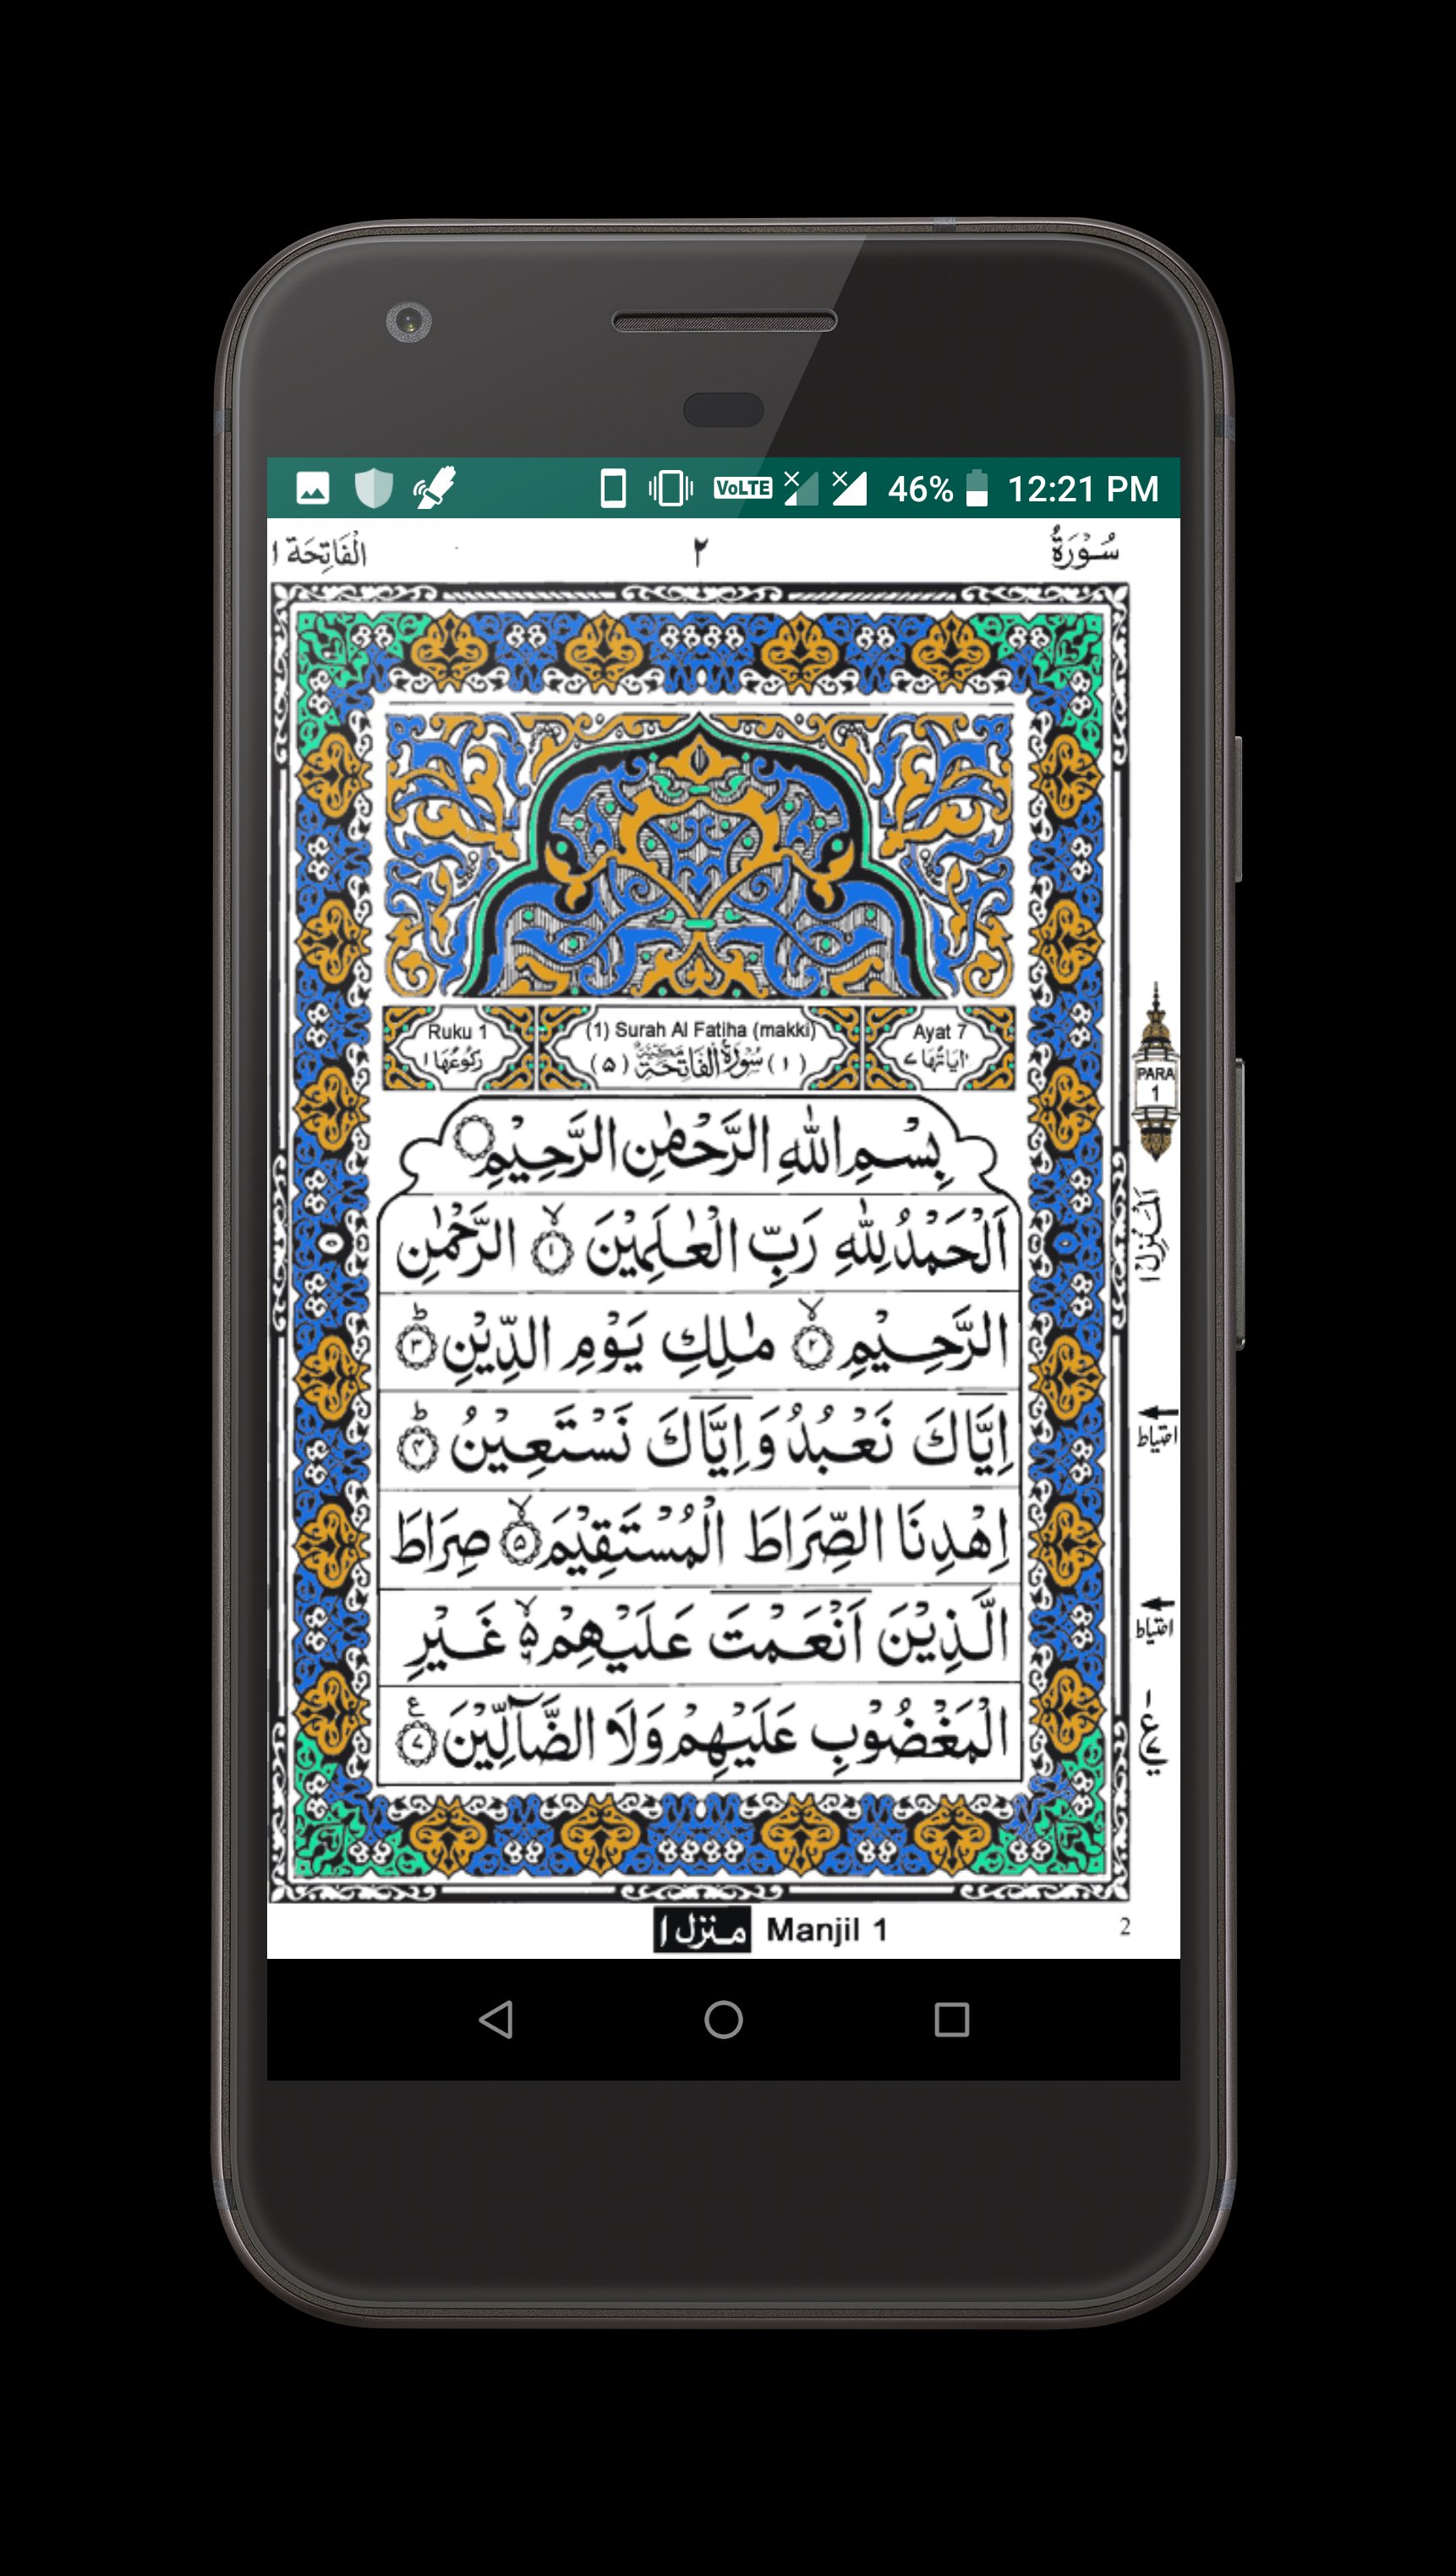 VoLTE 46% 12:21 PM
سُوْرَةُ ٢ الْفَاتِحَة ١
Ruku 1 (1) Surah Al Fatiha (makki) Ayat 7
اٰيَاتُهَا ٧ (١) سُوْرَةُ الْفَاتِحَةِ مَكِّيَّةٌ (۵) رُكُوْعُهَا ١
PARA
1
بِسْمِ اللّٰهِ الرَّحْمٰنِ الرَّحِيْمِ
اَلْحَمْدُ لِلّٰهِ رَبِّ الْعٰلَمِيْنَ ۙ﴿١﴾ الرَّحْمٰنِ
الرَّحِيْمِ ۙ﴿٢﴾ مٰلِكِ يَوْمِ الدِّيْنِ ؕ﴿٣﴾
اِيَّاكَ نَعْبُدُ وَاِيَّاكَ نَسْتَعِيْنُ ؕ﴿۴﴾
احتیاط
اِهْدِنَا الصِّرَاطَ الْمُسْتَقِيْمَ ۙ﴿۵﴾ صِرَاطَ
الَّذِيْنَ اَنْعَمْتَ عَلَيْهِمْ ۙ۵ غَيْرِ
احتیاط
الْمَغْضُوْبِ عَلَيْهِمْ وَلَا الضَّآلِّيْنَ ﴿٧﴾ ع
منزل ١ Manjil 1
2